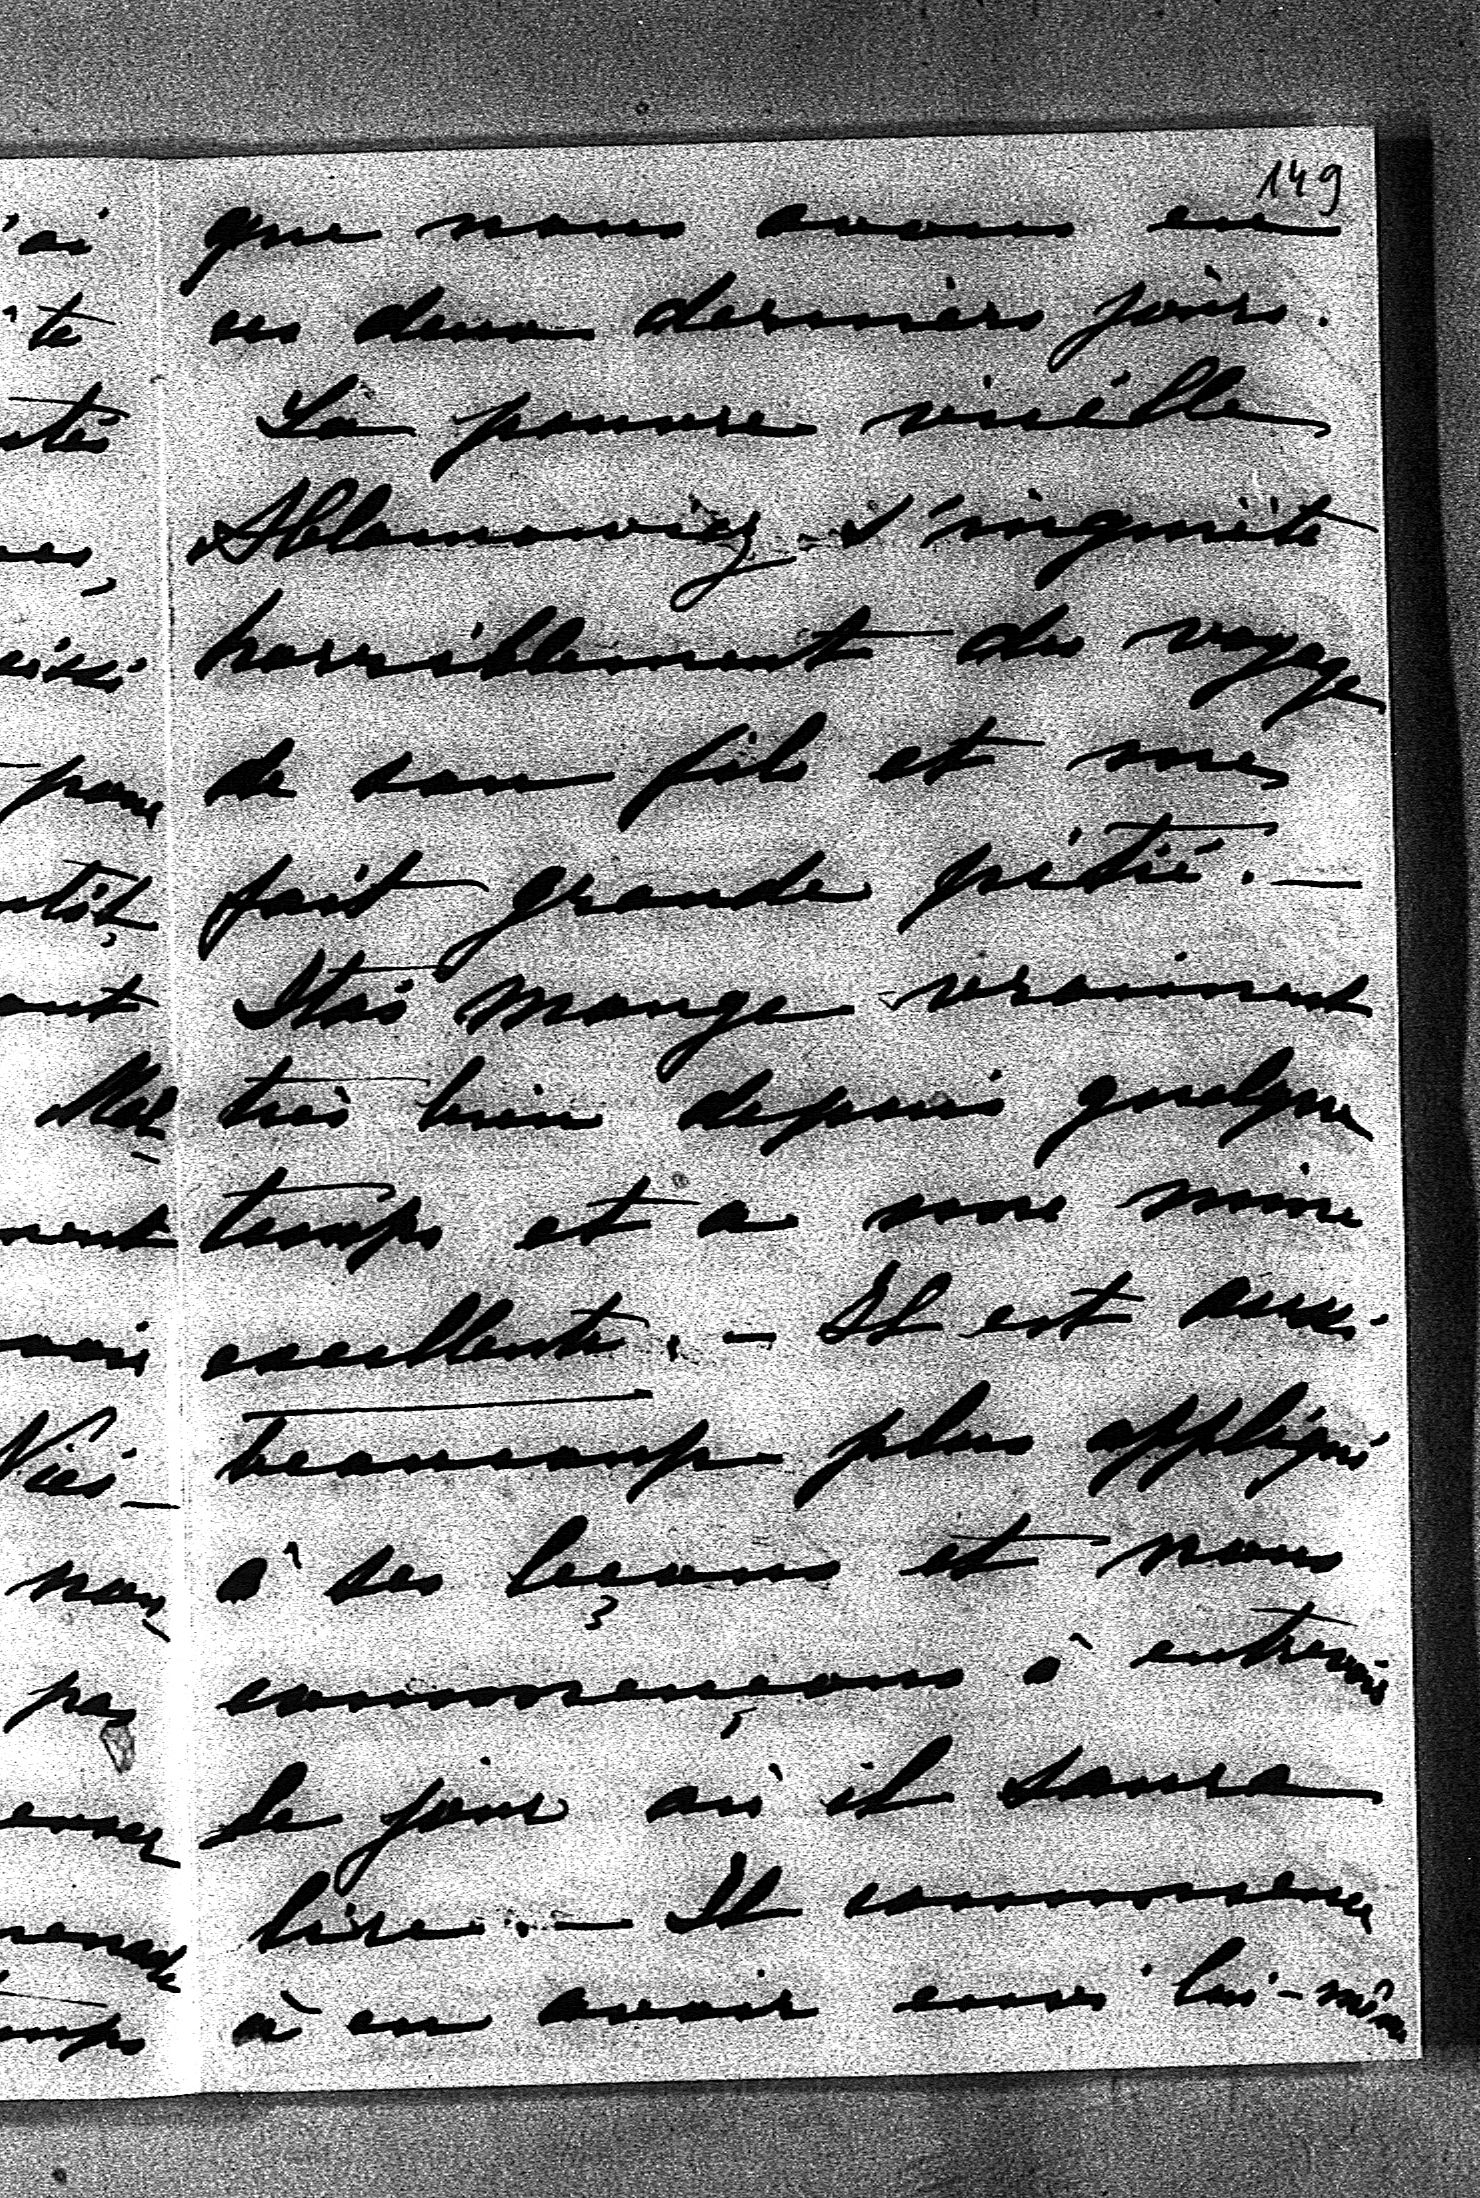 149
'ai que nous avons eu
te ces deux derniers jours.
ités La pauvre vieille
Ablamowicz s'inquiète
horriblement du voyage
de son fils et me
fait grande pitié. —
Stas mange vraiment
très bien depuis quelque
ment temps et a une mine
excellente. — Il est aussi
beaucoup plus appliqué
à ses leçons et nous
pas commençons à entrevoir
le jour où il saura
lire. — Il commence
à en avoir envie lui-même